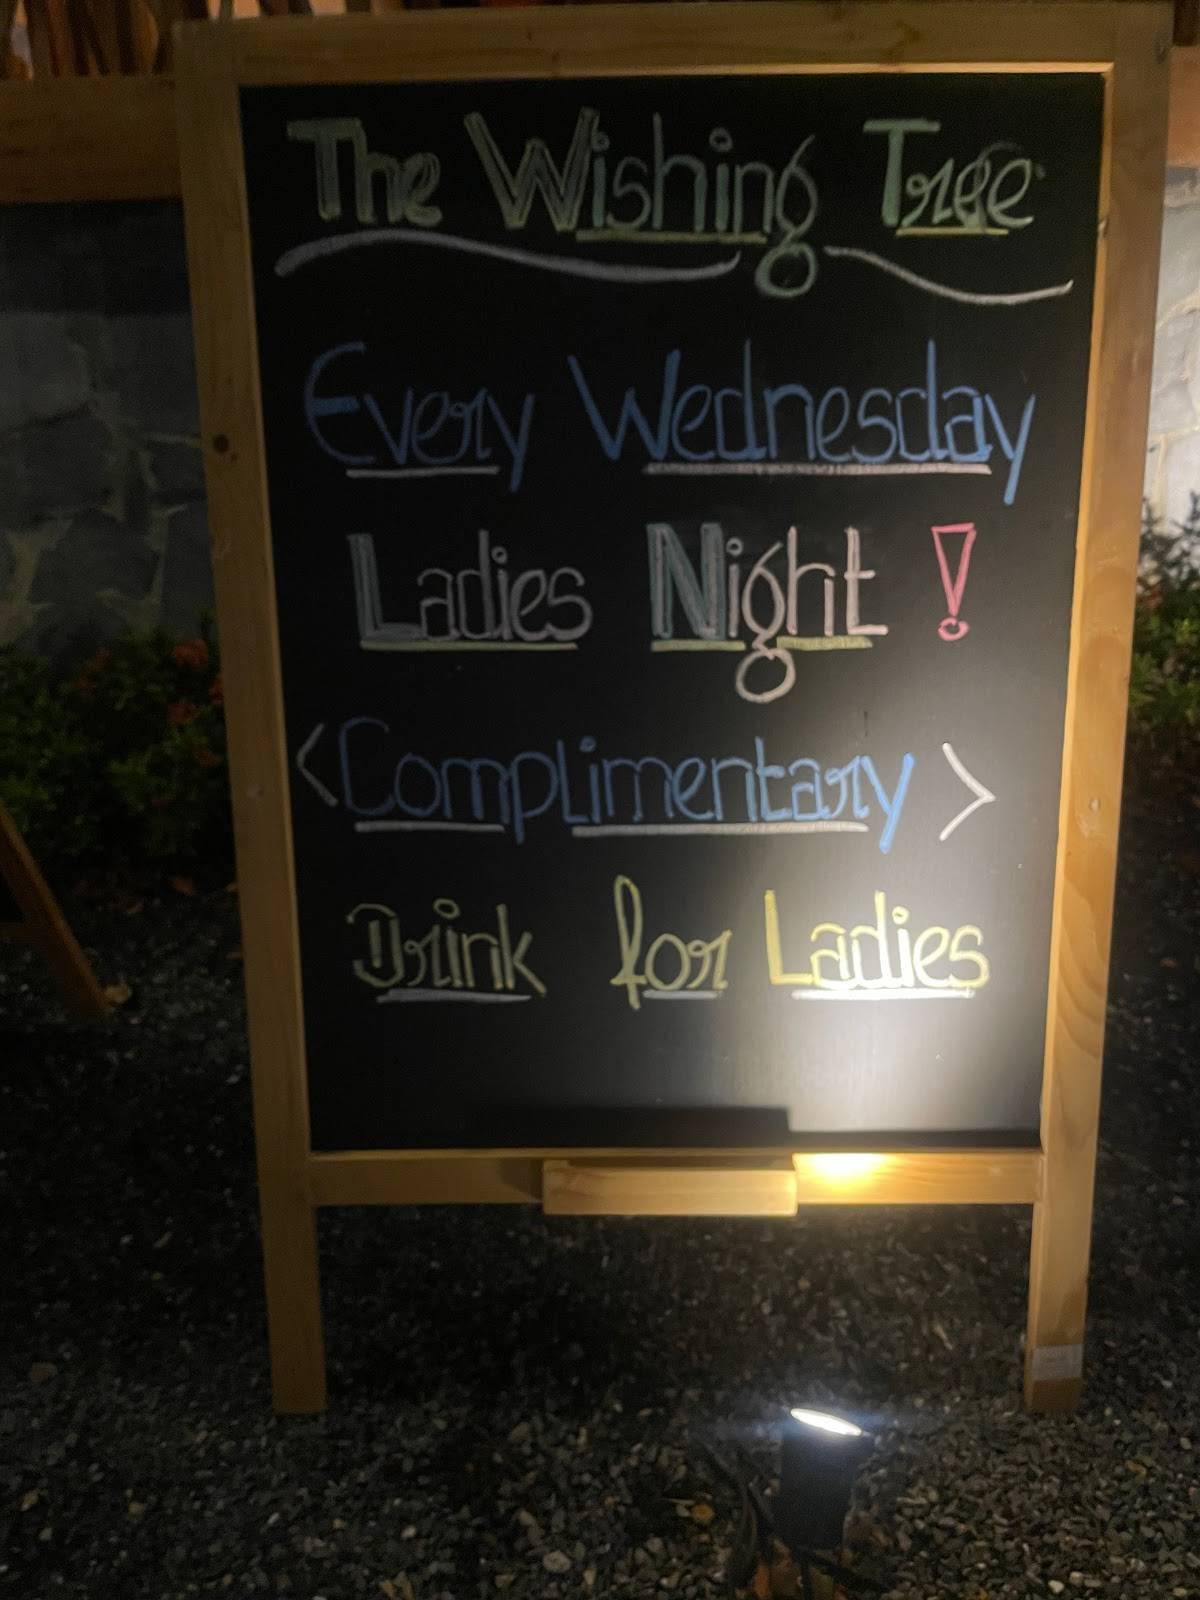 The Wishing Tree
Every Wednesday
Ladies Night !
<Complimentary>
Drink for Ladies